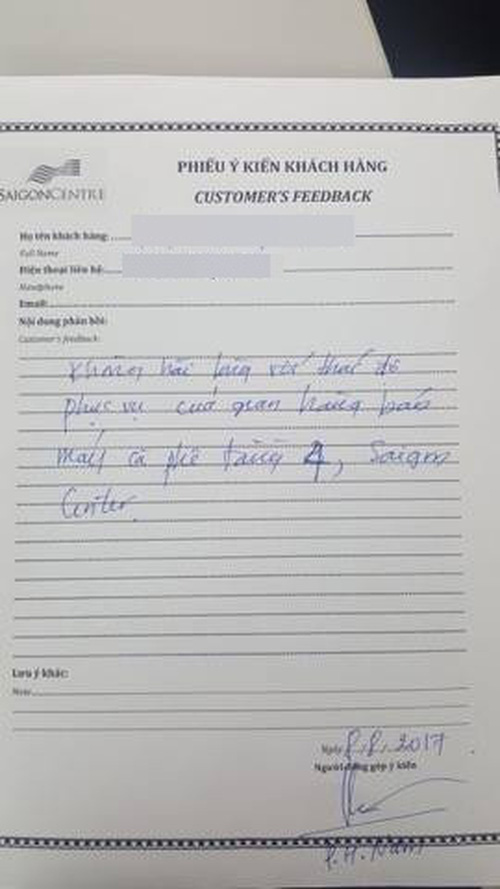 SAIGONCENTRE
PHIẾU Ý KIẾN KHÁCH HÀNG
CUSTOMER'S FEEDBACK
Họ tên khách hàng:
Full Name
Điện thoại liên hệ:
Handphone
Email:
Nội dung phản hồi:
Customer's feedback:
Không hài lòng với thái độ
phục vụ của gian hàng bán
máy cà phê tầng 4, Saigon
Center.
Lưu ý khác:
Note
Ngày 8.8.2017
Người đóng góp ý kiến
P.H. Nam